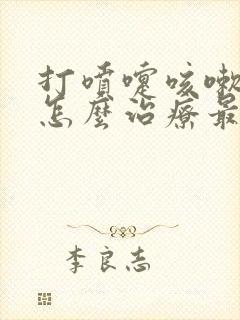 打噴嚏咳嗽
怎麼治療最
李良志